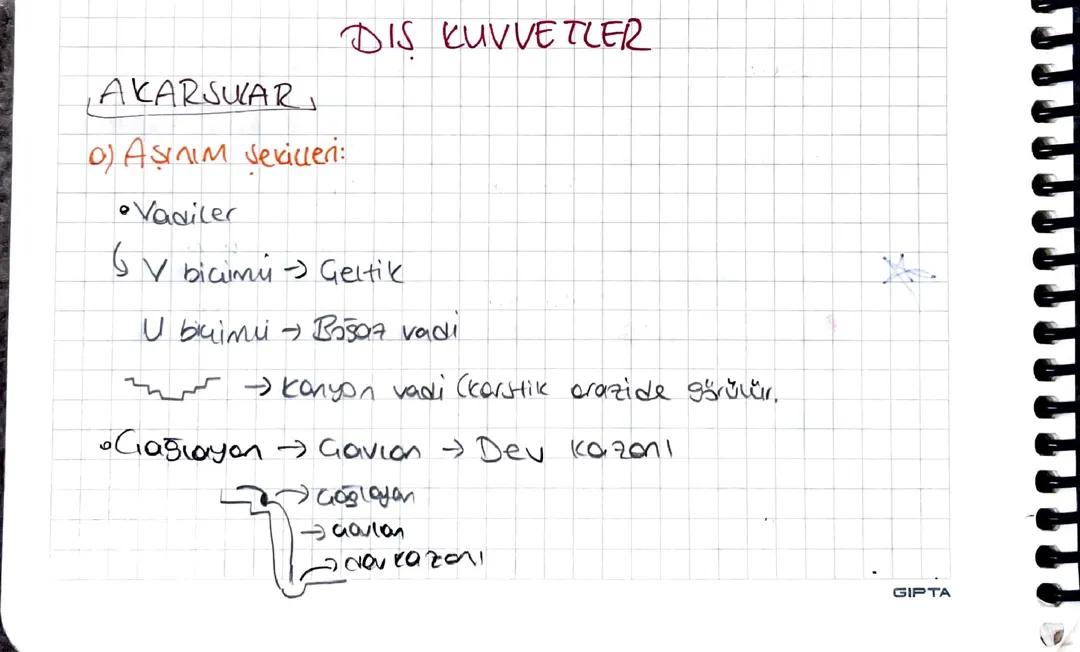 DIŞ KUVVETLER
AKARSULAR
a) AŞINIM Şekilleri:
• Vadiler
↳ V biçimli → Çentik
U biçimli → Boğaz vadi
→ Kanyon vadi (karstik arazide görülür.
• Çağlayan → Çavlan → Dev kazanı
→ Çağlayan
→ Çavlan
→ dev kazanı
GIPTA